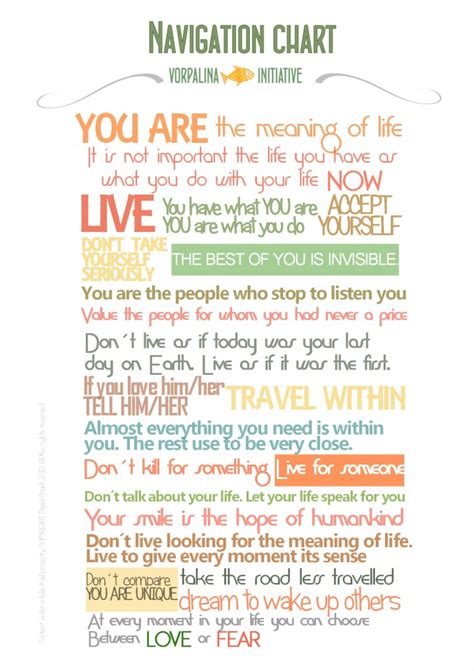 NAVIGATION CHART
VORPALINA INITIATIVE
YOU ARE the meaning of life
It is not important the life you have as
what you do with your life NOW
LIVE You have what YOU are ACCEPT
YOU are what you do YOURSELF
DON'T TAKE
YOURSELF
SERIOUSLY
THE BEST OF YOU IS INVISIBLE.
You are the people who stop to listen you
Value the people for whom you had never a price
Don´t live as if today was your last
day on Earth. Live as if it was the first.
If you love him/her
TELL HIM/HER
TRAVEL WITHIN
Almost everything you need is within
you. The rest use to be very close.
Don´t kill for something Live for someone
Don´t talk about your life. Let your life speak for you
Your smile is the hope of humankind
Don´t live looking for the meaning of life.
Live to give every moment its sense
Don´t compare
YOU ARE UNIQUE
take the road less travelled
dream to wake up others
At every moment in your life you can choose
Between LOVE or FEAR
All rights reserved